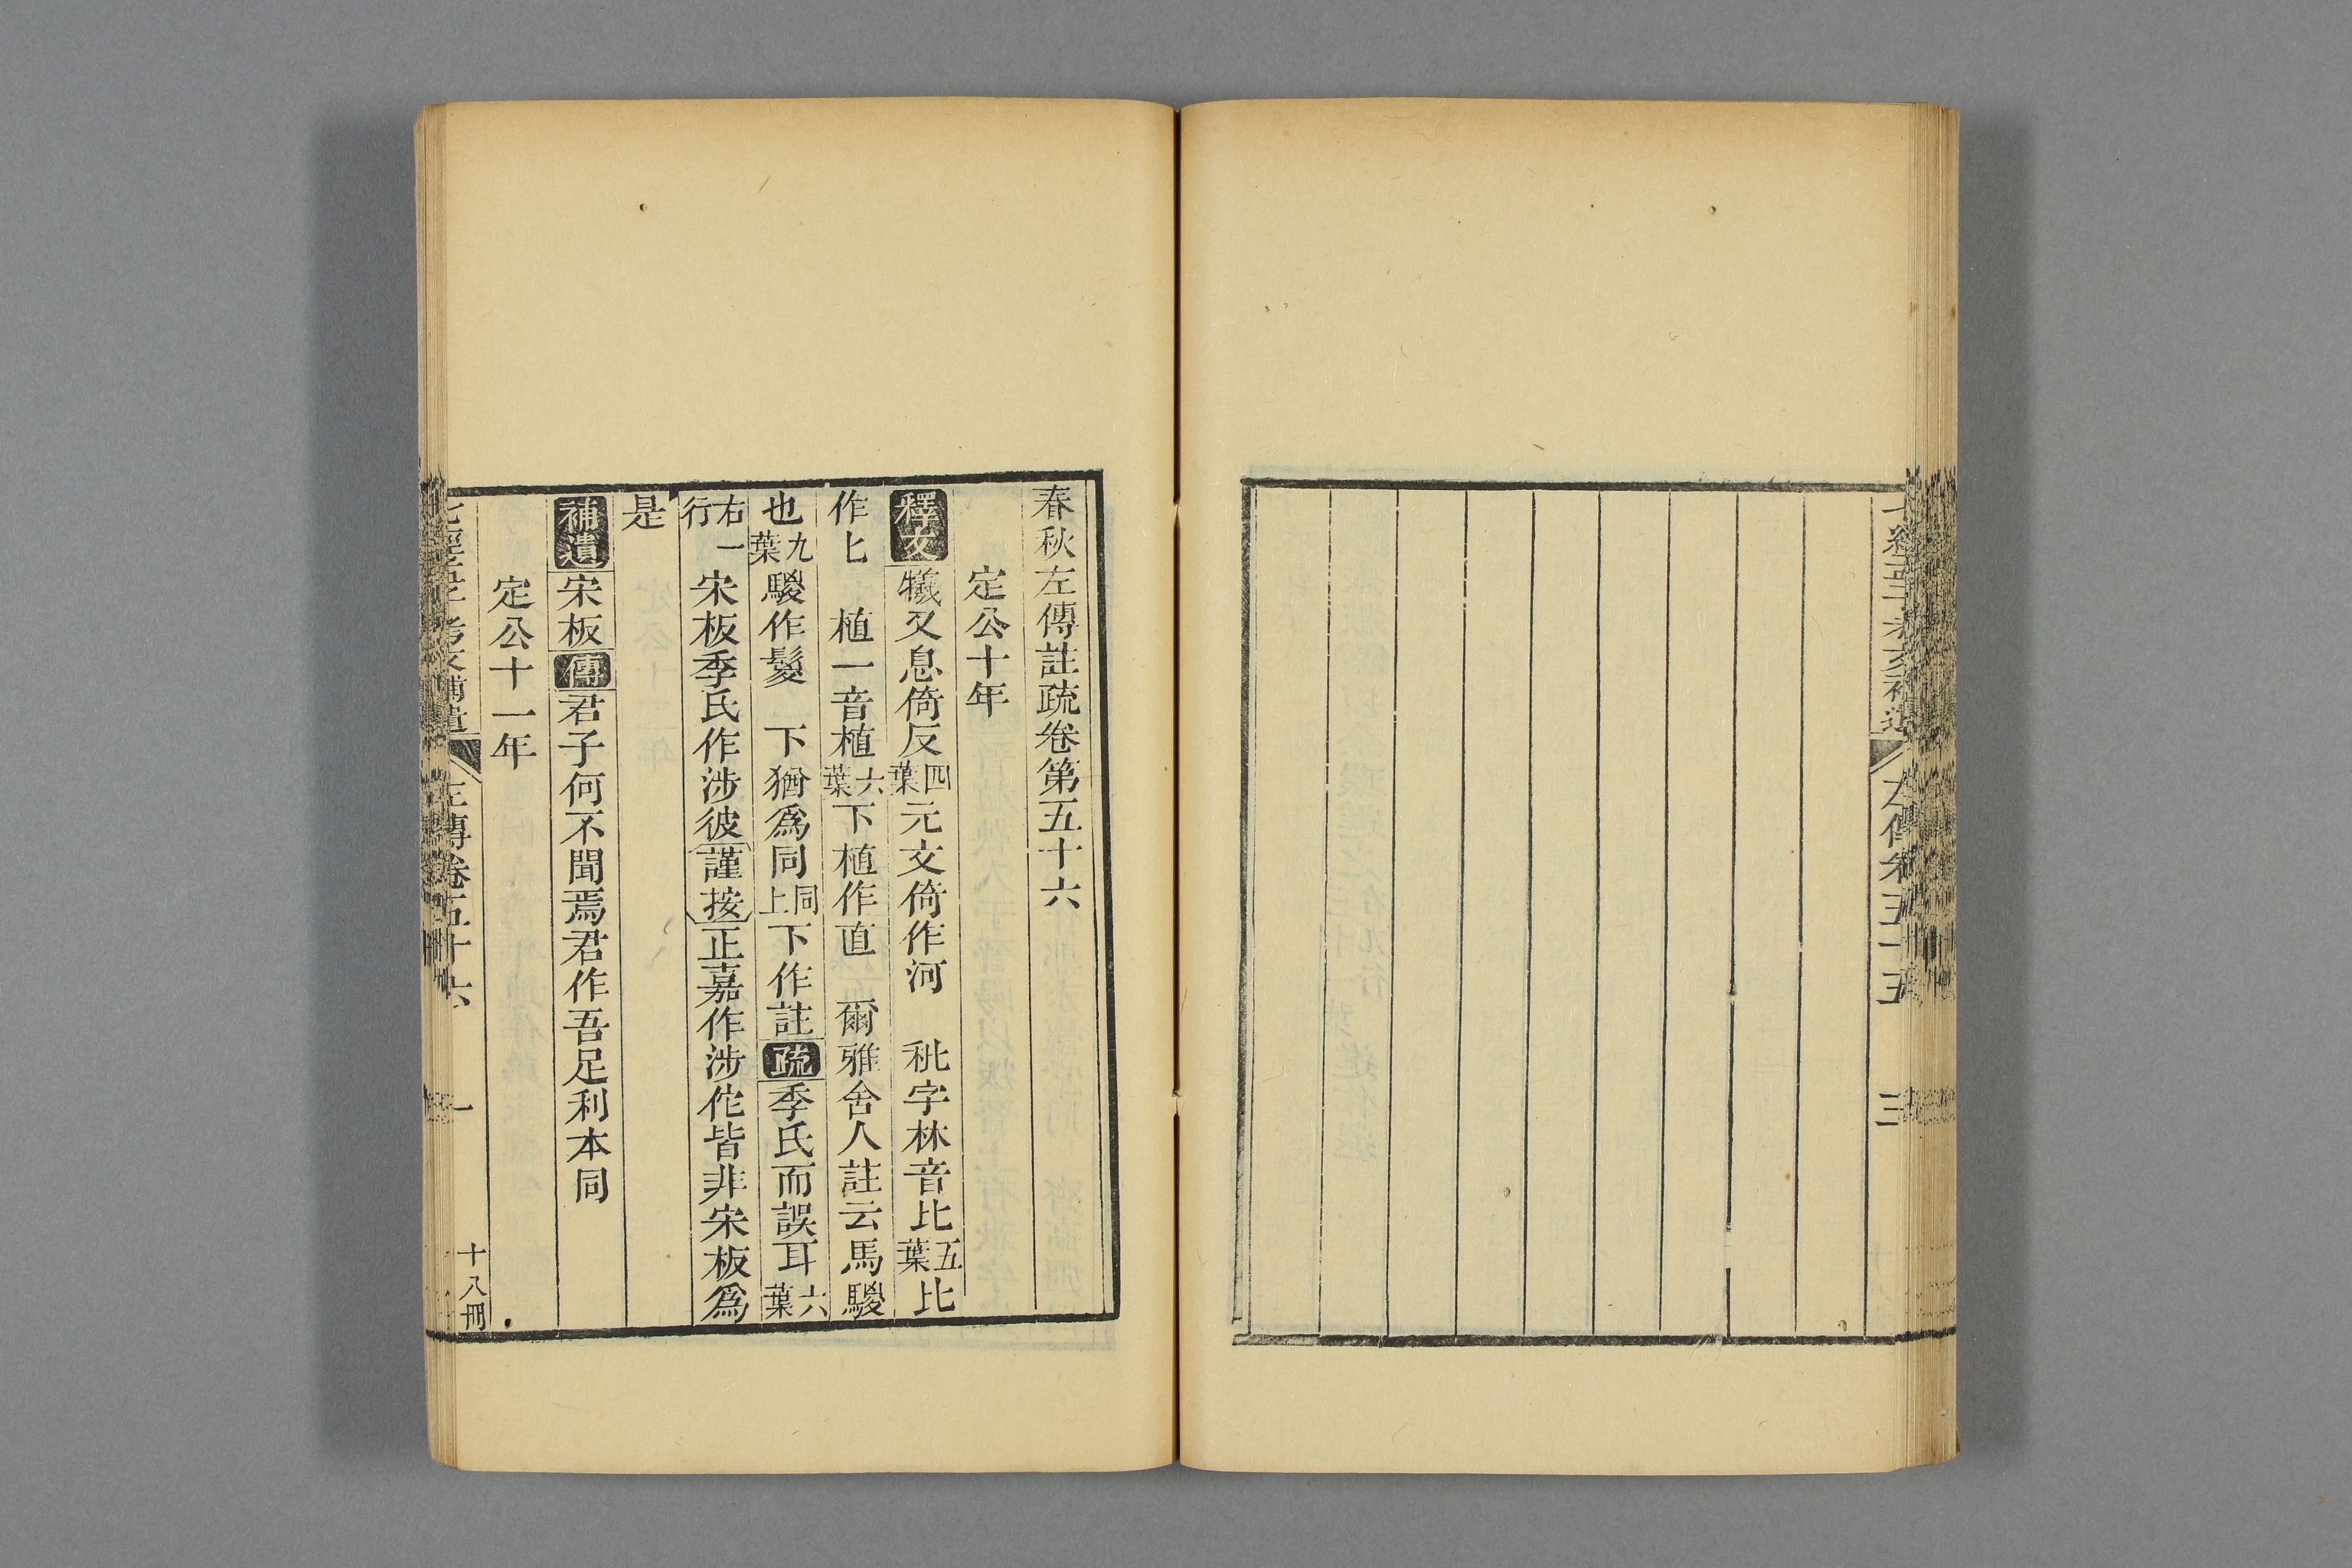 七經孟子考文補遺 左傳卷五十五 三
春秋左傳註疏卷第五十六
定公十年
釋文 犧又息倚反四葉元文倚作河 秕字林音比五葉比
作匕 植一音植六葉下植作直 爾雅舍人註云馬騣
也九葉騣作鬉 下猶爲同同上下作註 疏 季氏而誤耳六葉
右一行宋板季氏作涉彼謹按正嘉作涉佗皆非宋板爲
是
補遺 宋板 傳 君子何不聞焉君作吾足利本同
定公十一年
七經孟子考文補遺 左傳卷五十六 一 十八冊